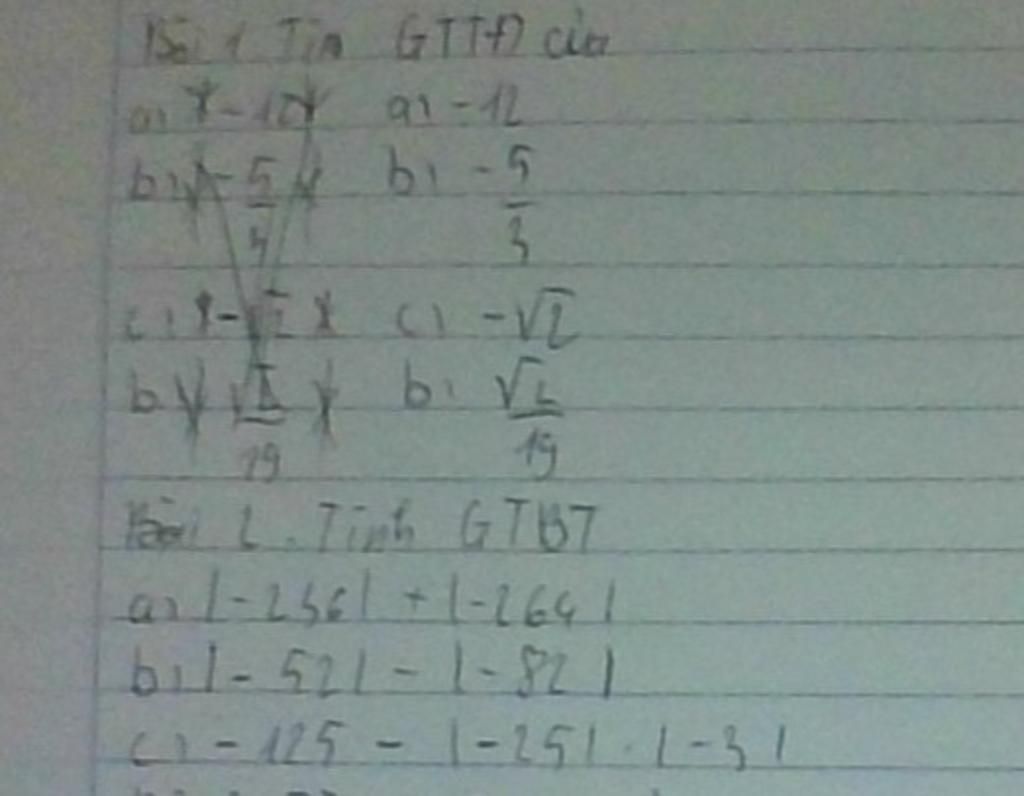 Bài 1 Tìm GTTĐ của
a) -12 a) -12
b) -5/3 b) -5/3
c) -√2 c) -√2
b) √2/19 b) √2/19
Bài 2. Tính GTBT
a) |-236| + |-264|
b) |-52| - |-82|
c) -125 - |-25| . |-3|